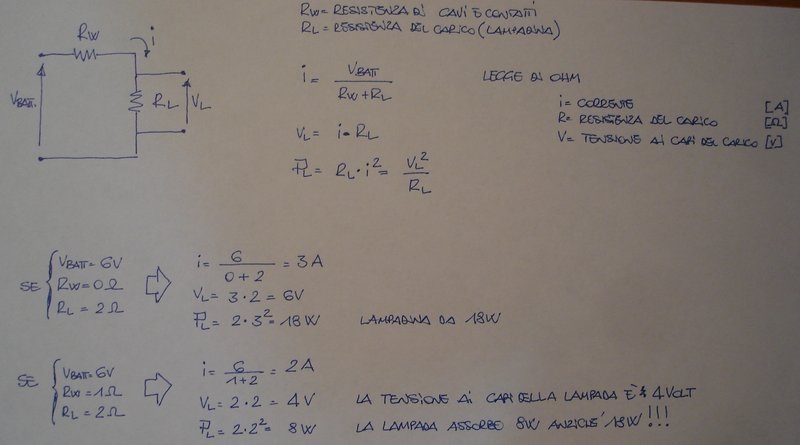 RW = RESISTENZA DI CAVI E CONTATTI
RL = RESISTENZA DEL CARICO (LAMPADINA)
RW
i
VBATT.
RL
VL
i = VBATT / RW + RL
LEGGE DI OHM
i = CORRENTE [A]
R = RESISTENZA DEL CARICO [Ω]
V = TENSIONE AI CAPI DEL CARICO [V]
VL = i • RL
PL = RL · i² = VL² / RL
SE
VBATT = 6V
RW = 0 Ω
RL = 2 Ω
i = 6 / 0 + 2 = 3 A
VL = 3 · 2 = 6V
PL = 2 · 3² = 18 W LAMPADINA DA 18W
SE
VBATT = 6V
RW = 1 Ω
RL = 2 Ω
i = 6 / 1 + 2 = 2 A
VL = 2 · 2 = 4 V LA TENSIONE AI CAPI DELLA LAMPADA È 4 VOLT
PL = 2 · 2² = 8 W LA LAMPADA ASSORBE 8W ANZICHE' 18W!!!